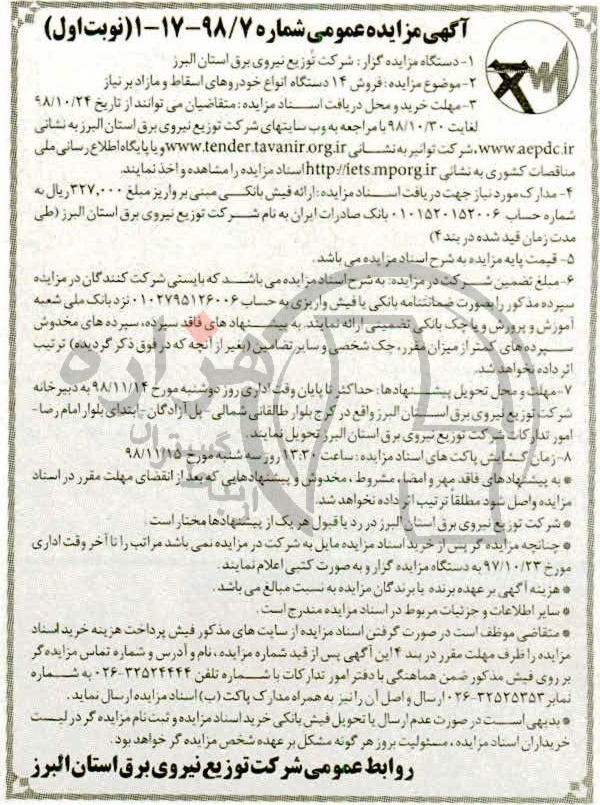 آگهی مزایده عمومی شماره ۹۸/۷-۱۷-۱ (نوبت اول)
۱- دستگاه مزایده گزار: شرکت توزیع نیروی برق استان البرز
۲- موضوع مزایده: فروش ۱۴ دستگاه انواع خودروهای اسقاط و مازاد بر نیاز
۳- مهلت خرید و محل دریافت اسناد مزایده: متقاضیان می توانند از تاریخ ۹۸/۱۰/۲۴
لغایت ۹۸/۱۰/۳۰ با مراجعه به وب سایتهای شرکت توزیع نیروی برق استان البرز به نشانی
www.aepdc.ir، شرکت توانیر به نشانی www.tender.tavanir.org.ir و یا پایگاه اطلاع رسانی ملی
مناقصات کشوری به نشانی http://iets.mporg.ir اسناد مزایده را مشاهده و اخذ نمایند.
۴- مدارک مورد نیاز جهت دریافت اسناد مزایده: ارائه فیش بانکی مبنی بر واریز مبلغ ۳۲۷,۰۰۰ ریال به
شماره حساب ۰۱۰۱۵۲۰۱۵۲۰۰۶ بانک صادرات ایران به نام شرکت توزیع نیروی برق استان البرز (طی
مدت زمان قید شده در بند ۴)
۵- قیمت پایه مزایده به شرح اسناد مزایده می باشد.
۶- مبلغ تضمین شرکت در مزایده: به شرح اسناد مزایده می باشد که بایستی شرکت کنندگان در مزایده
سپرده مذکور را بصورت ضمانتنامه بانکی یا فیش واریزی به حساب ۰۱۰۲۷۹۵۱۲۶۰۰۶ نزد بانک ملی شعبه
آموزش و پرورش و یا چک بانکی تضمینی ارائه نمایند. به پیشنهادهای فاقد سپرده، سپرده های مخدوش
سپرده های کمتر از میزان مقرر، چک شخصی و سایر تضامین (بغیر از آنچه که در فوق ذکر گردیده) ترتیب
اثر داده نخواهد شد.
۷- مهلت و محل تحویل پیشنهادها: حداکثر تا پایان وقت اداری روز دوشنبه مورخ ۹۸/۱۱/۱۴ به دبیرخانه
شرکت توزیع نیروی برق استان البرز واقع در کرج بلوار طالقانی شمالی - پل آزادگان - ابتدای بلوار امام رضا -
امور تدارکات شرکت توزیع نیروی برق استان البرز تحویل نمایند.
۸- زمان گشایش پاکت های اسناد مزایده: ساعت ۱۳:۳۰ روز سه شنبه مورخ ۹۸/۱۱/۱۵
* به پیشنهادهای فاقد مهر و امضاء، مشروط، مخدوش و پیشنهادهایی که بعد از انقضای مهلت مقرر در اسناد
مزایده واصل شود مطلقاً ترتیب اثر داده نخواهد شد.
* شرکت توزیع نیروی برق استان البرز در رد یا قبول هر یک از پیشنهادها مختار است.
* چنانچه مزایده گر پس از خرید اسناد مزایده مایل به شرکت در مزایده نمی باشد مراتب را تا آخر وقت اداری
مورخ ۹۷/۱۰/۲۳ به دستگاه مزایده گزار و به صورت کتبی اعلام نمایند.
* هزینه آگهی بر عهده برنده یا برندگان مزایده به نسبت مبالغ می باشد.
* سایر اطلاعات و جزئیات مربوط در اسناد مزایده مندرج است.
* متقاضی موظف است در صورت گرفتن اسناد مزایده از سایت های مذکور فیش پرداخت هزینه خرید اسناد
مزایده را ظرف مهلت مقرر در بند ۴ این آگهی پس از قید شماره مزایده، نام و آدرس و شماره تماس مزایده گر
بر روی فیش مذکور ضمن هماهنگی با دفتر امور تدارکات با شماره تلفن ۳۲۵۲۴۴۴۴-۰۲۶ به شماره
نمابر ۳۲۵۲۵۳۵۳-۰۲۶ ارسال و اصل آن را نیز به همراه مدارک پاکت (ب) اسناد مزایده ارسال نماید.
* بدیهی است در صورت عدم ارسال یا تحویل فیش بانکی خرید اسناد مزایده و ثبت نام مزایده گر در لیست
خریداران اسناد مزایده، مسئولیت بروز هر گونه مشکل بر عهده شخص مزایده گر خواهد بود.
روابط عمومی شرکت توزیع نیروی برق استان البرز
هزاره